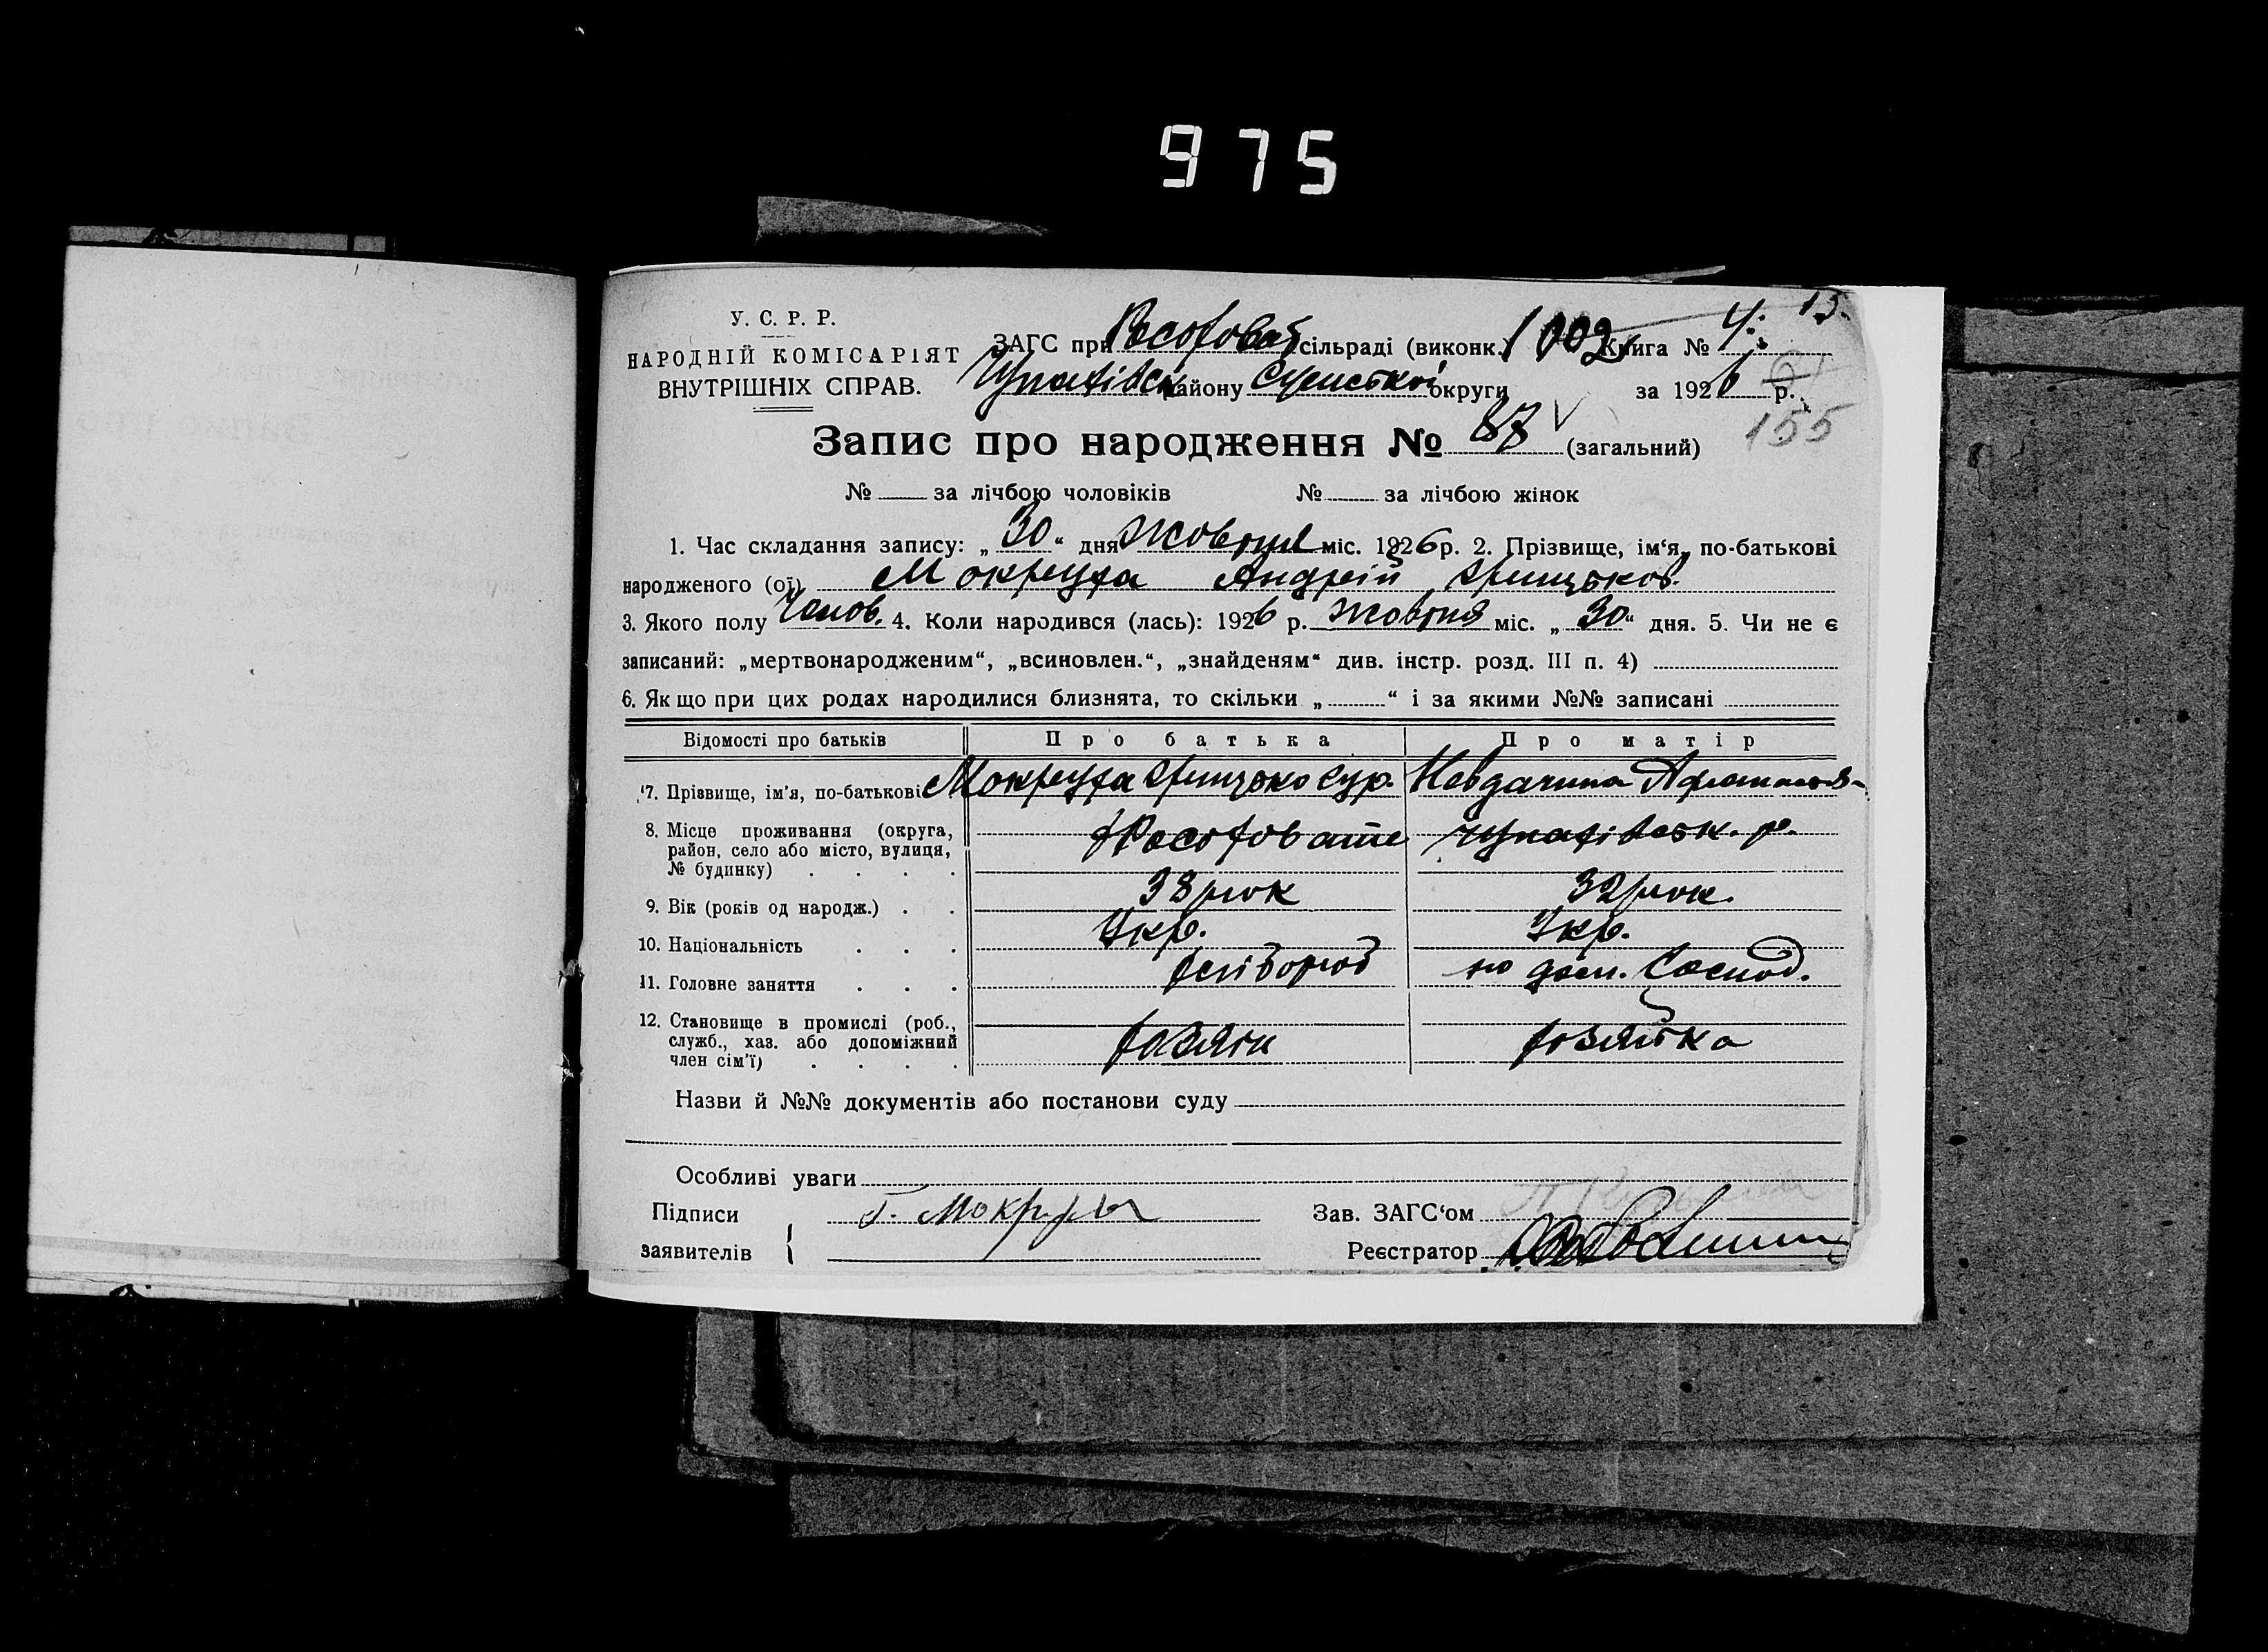 975
У. С. Р. Р.
НАРОДНІЙ КОМІСАРІЯТ
ВНУТРІШНІХ СПРАВ.
ЗАГС при Росоховат сільраді (виконк.) 1002 Книга № 4. 15.
району Сумської округи за 1926 р.
155
Запис про народження № 87 (загальний)
№ за лічбою чоловіків № за лічбою жінок
1. Час складання запису: „30“ дня Жовтня міс. 1926 р. 2. Прізвище, ім‘я, по-батькові
народженого (ої) Мокруха Андрій Грицьков.
3. Якого полу Чолов. 4. Коли народився (лась): 1926 р. Жовтня міс. „30“ дня. 5. Чи не є
записаний: „мертвонародженим“, „всиновлен.“, „знайденям“ див. інстр. розд. III п. 4)
6. Якщо при цих родах народилися близнята, то скільки „ “ і за якими №№ записані
Відомості про батьків Про батька Про матір
7. Прізвище, ім'я, по-батькові Мокруха Грицько
8. Місце проживання (округа,
район, село або місто, вулиця,
№ будинку) . . . .
9. Вік (років од народж.) . . 38 рок 32 рок.
10. Національність . . . Укр. Укр.
11. Головне заняття . . . хлібороб
12. Становище в промислі (роб.,
служб., хаз. або допоміжний
член сім'ї) . . . . хазяін хозяйка
Назви й №№ документів або постанови суду
Особливі уваги
Підписи Г. Мокруха Зав. ЗАГС‘ом
заявителів Реєстратор